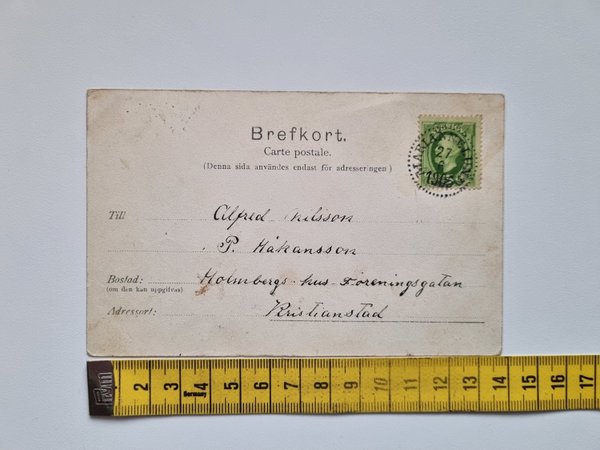 Brefkort.
Carte postale.
(Denna sida användes endast för adresseringen)
1903
Till
Alfred Nilsson
P. Håkansson
Bostad:
Holmbergs hus Föreningsgatan
(om den kan uppgifvas)
Adressort:
Kristianstad
2 3 4 5 6 7 8 9 10 11 12 13 14 15 16 17
Germany